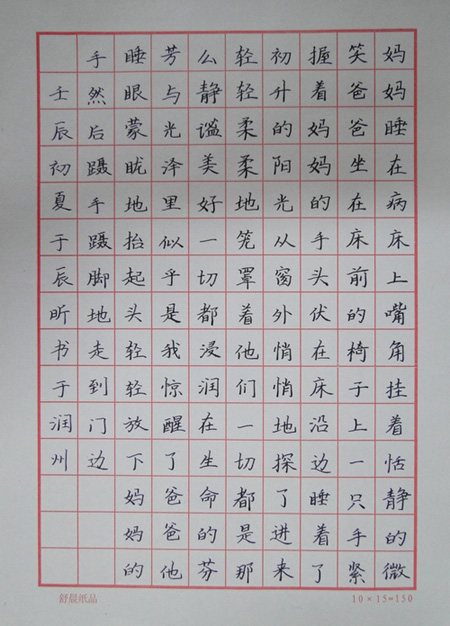 妈妈睡在病床上嘴角挂着恬静的微
笑爸爸坐在床前的椅子上一只手紧
握着妈妈的手头伏在床沿边睡着了
初升的阳光从窗外悄悄地探了进来
轻轻柔柔地笼罩着他们一切都是那
么静谧美好一切都浸润在生命的芬
芳与光泽里似乎是我惊醒了爸爸他
睡眼蒙眬地抬起头轻轻放下妈妈的
手然后蹑手蹑脚地走到门边
壬辰初夏于辰昕书于润州
舒晨纸品
10×15=150